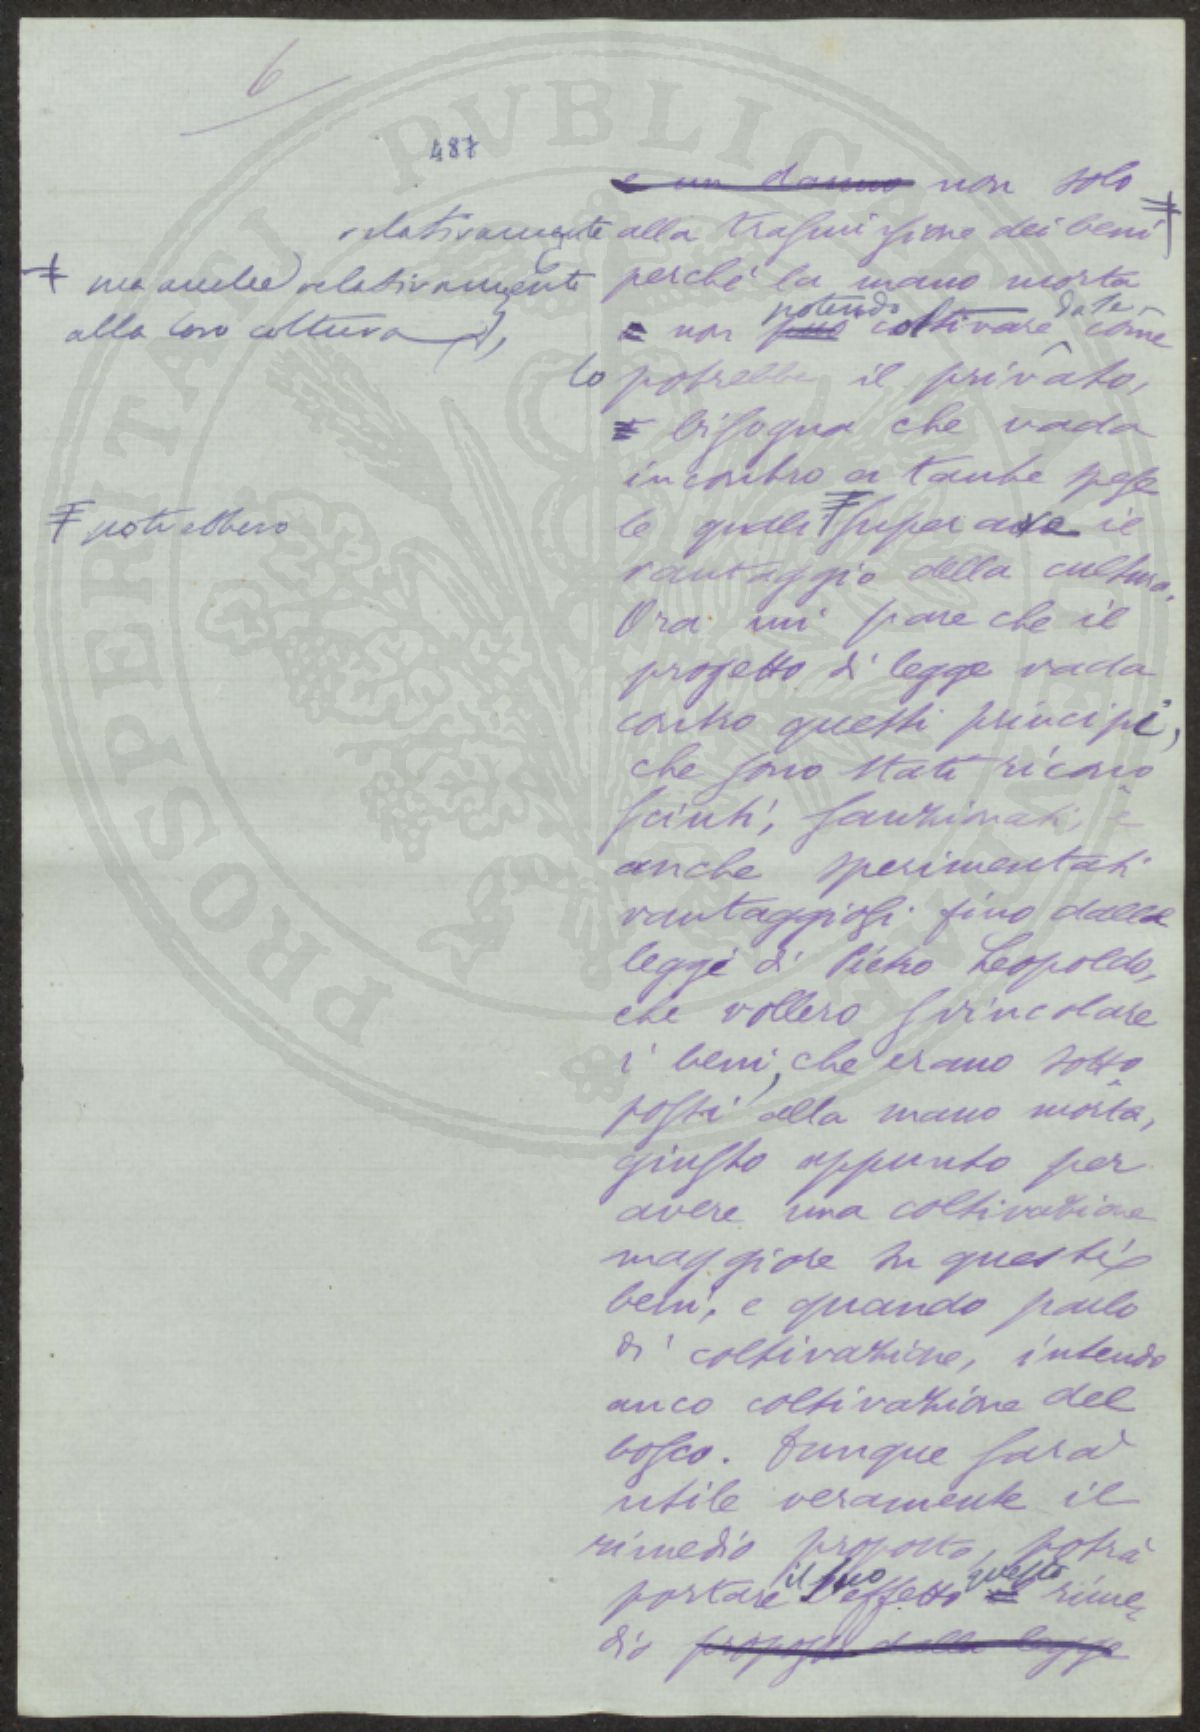 6
487
e un danno non solo
relativamente alla trasmissione dei beni
ma anche relativamente
alla loro coltura
perché la mano morta
potendo
non può coltivare come
lo potrebbe il privato,
bisogna che vada
incontro a tante spese
potrebbero
le quali superare il
vantaggio della cultura.
Ora mi pare che il
progetto di legge vada
contro questi principi,
che sono stati ricono
sciuti, sanzionati, e
anche sperimentati
vantaggiosi fino dalle
leggi di Pietro Leopoldo,
che vollero svincolare
i beni, che erano sotto
posti alla mano morta,
giusto appunto per
avere una coltivazione
maggiore in questi
beni, e quando parlo
di coltivazione, intendo
anco coltivazione del
bosco. Dunque sarà
utile veramente il
rimedio proposto, potrà
il suo questo
portare l'effetto il rime=
dio proposto dalla legge
PROSPERITATI PVBLICAE AVGENDAE